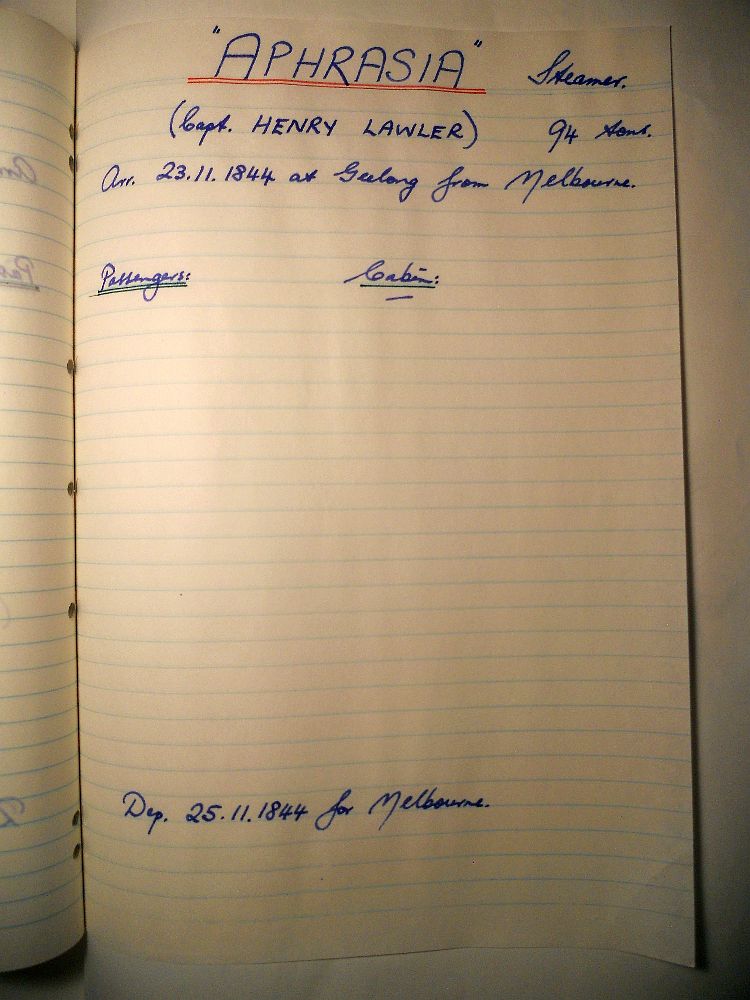 "APHRASIA" Steamer.
(Capt. HENRY LAWLER) 94 tons.
Arr. 23.11.1844 at Geelong from Melbourne.
Passengers: Cabin:
Dep. 25.11.1844 for Melbourne.